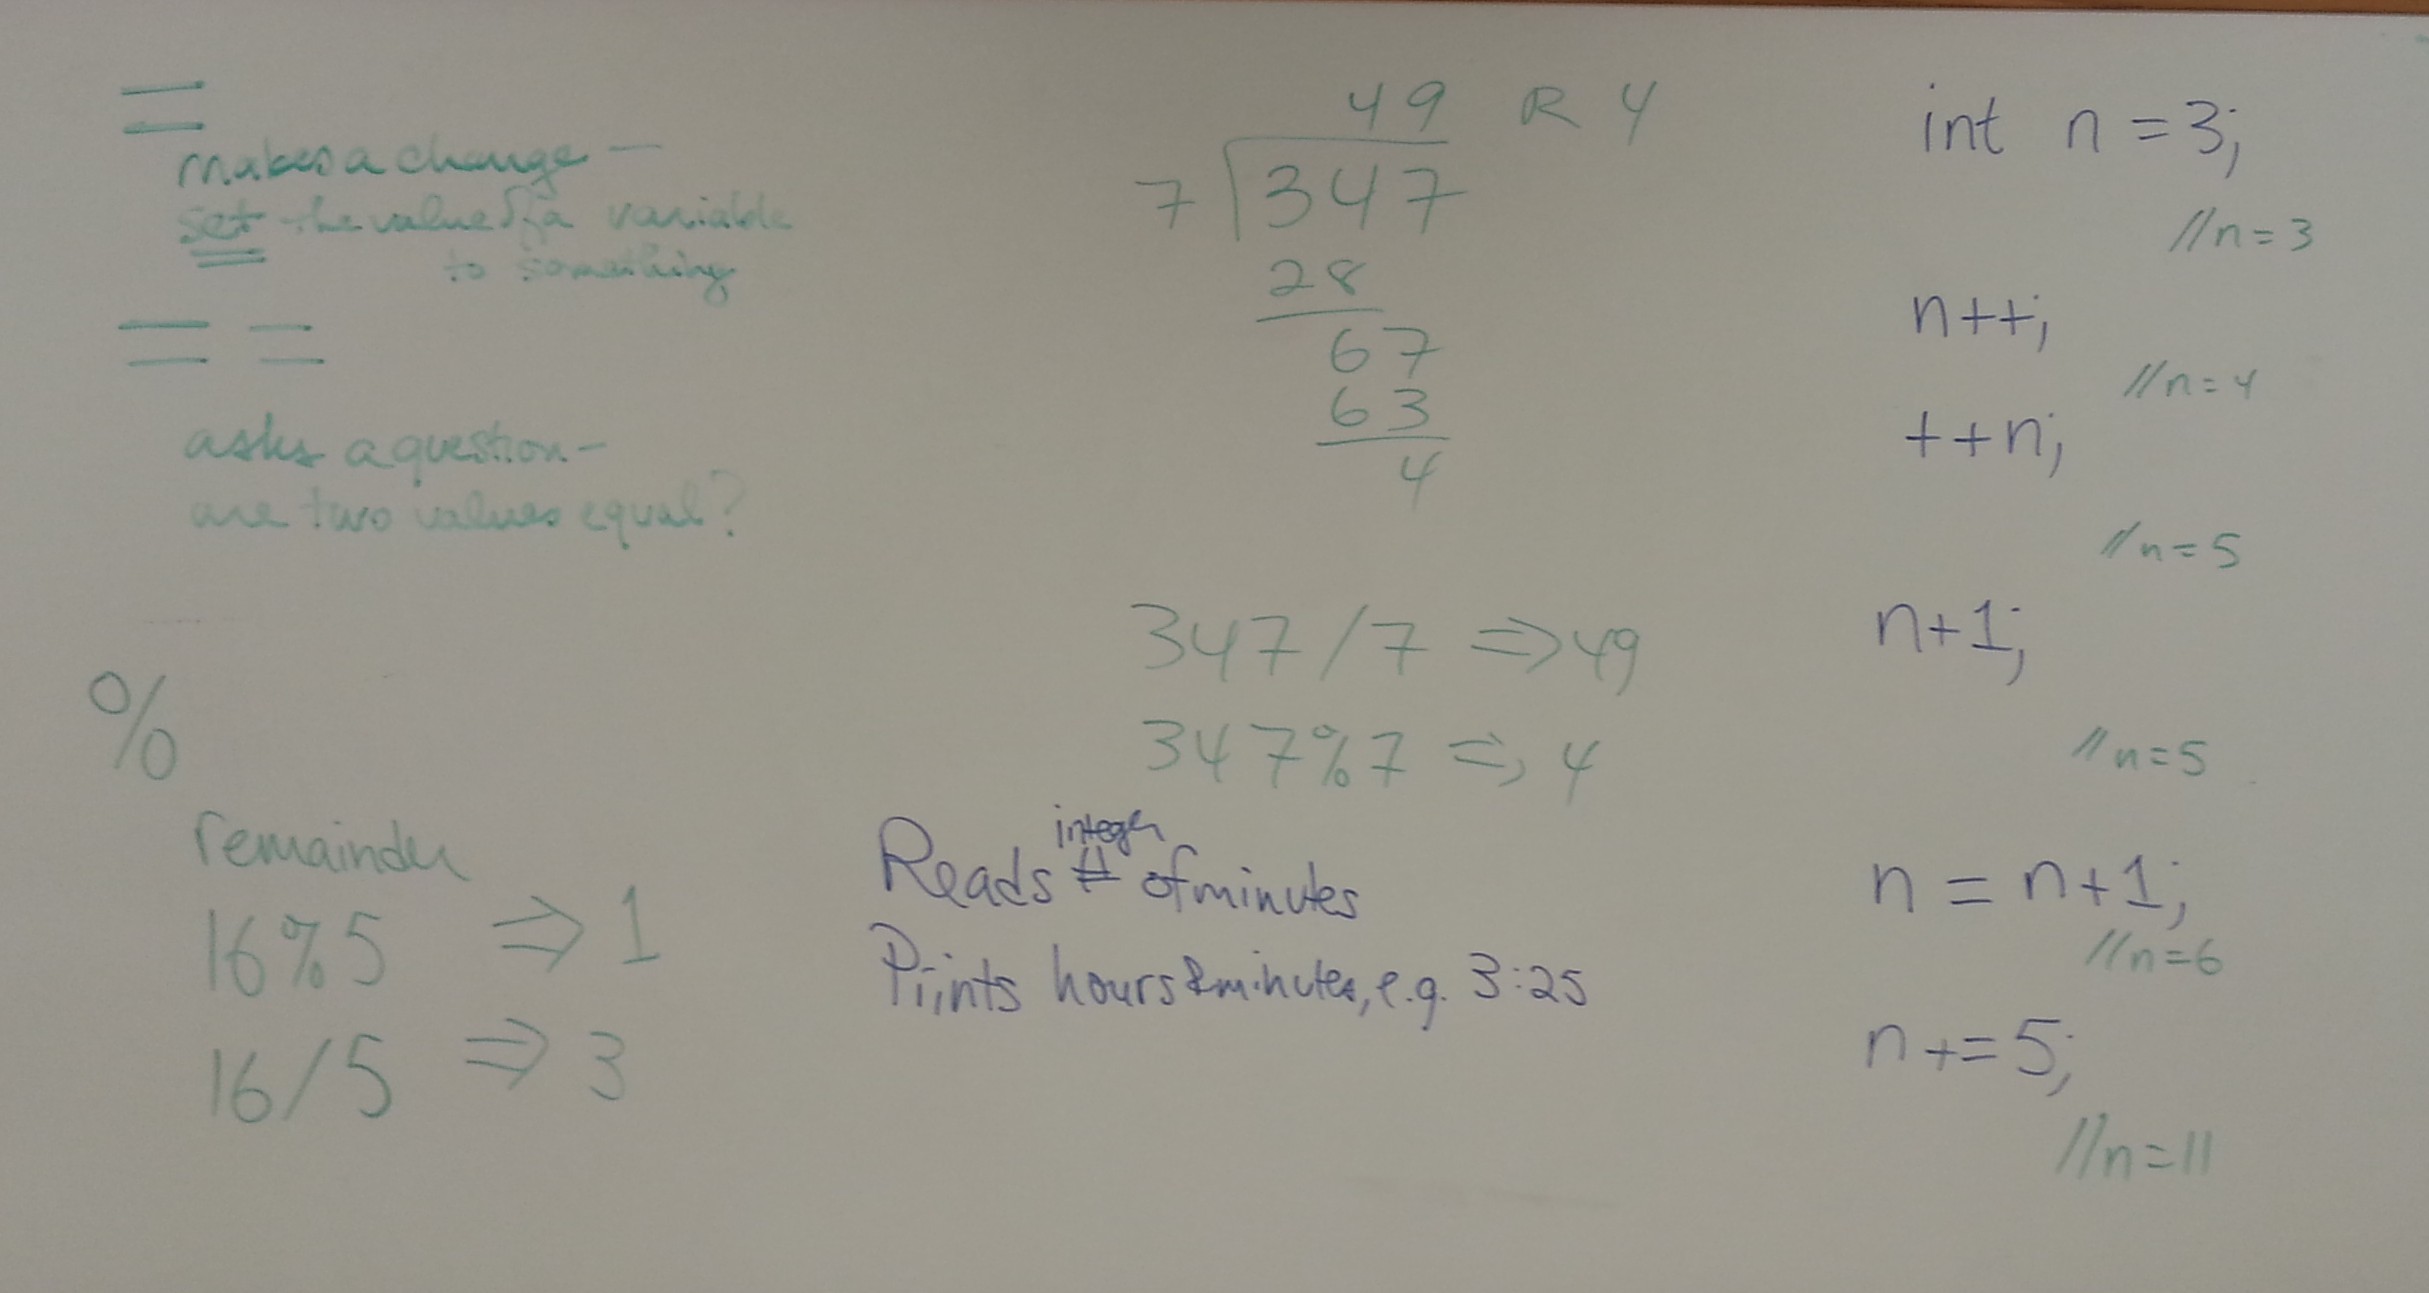 =
makes a change –
set the value of a variable
to something
= =
asks a question –
are two values equal?
%
remainder
16%5 ⇒ 1
16/5 ⇒ 3
49 R 4
7 347
28
67
63
4
347/7 ⇒ 49
347%7 ⇒ 4
integer
Reads # of minutes
Prints hours & minutes, e.g. 3:25
int n = 3;
//n=3
n++;
//n=4
++n;
//n=5
n+1;
//n=5
n = n+1;
//n=6
n+=5;
//n=11